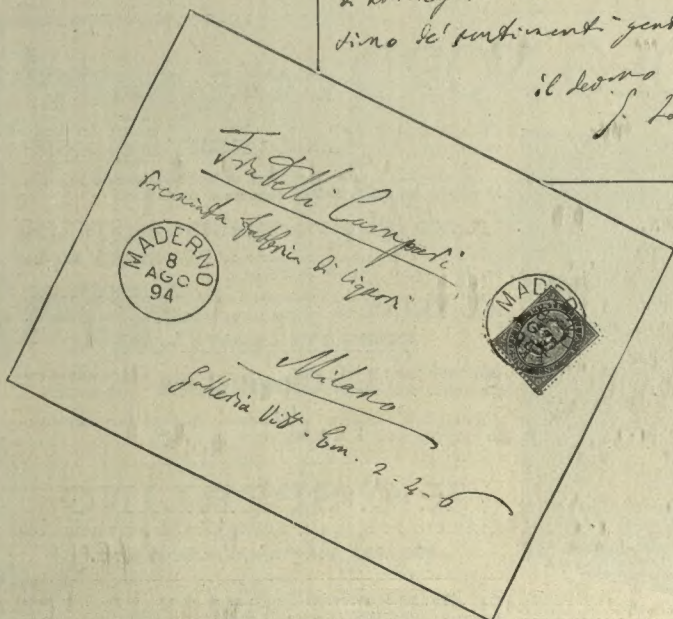 sino de' sentimenti
il dev.mo
Fratelli Campari
Premiata fabbrica di liquori
MADERNO
8
AGO
94
MADER
Milano
Galleria Vitt. Em. 2-4-6